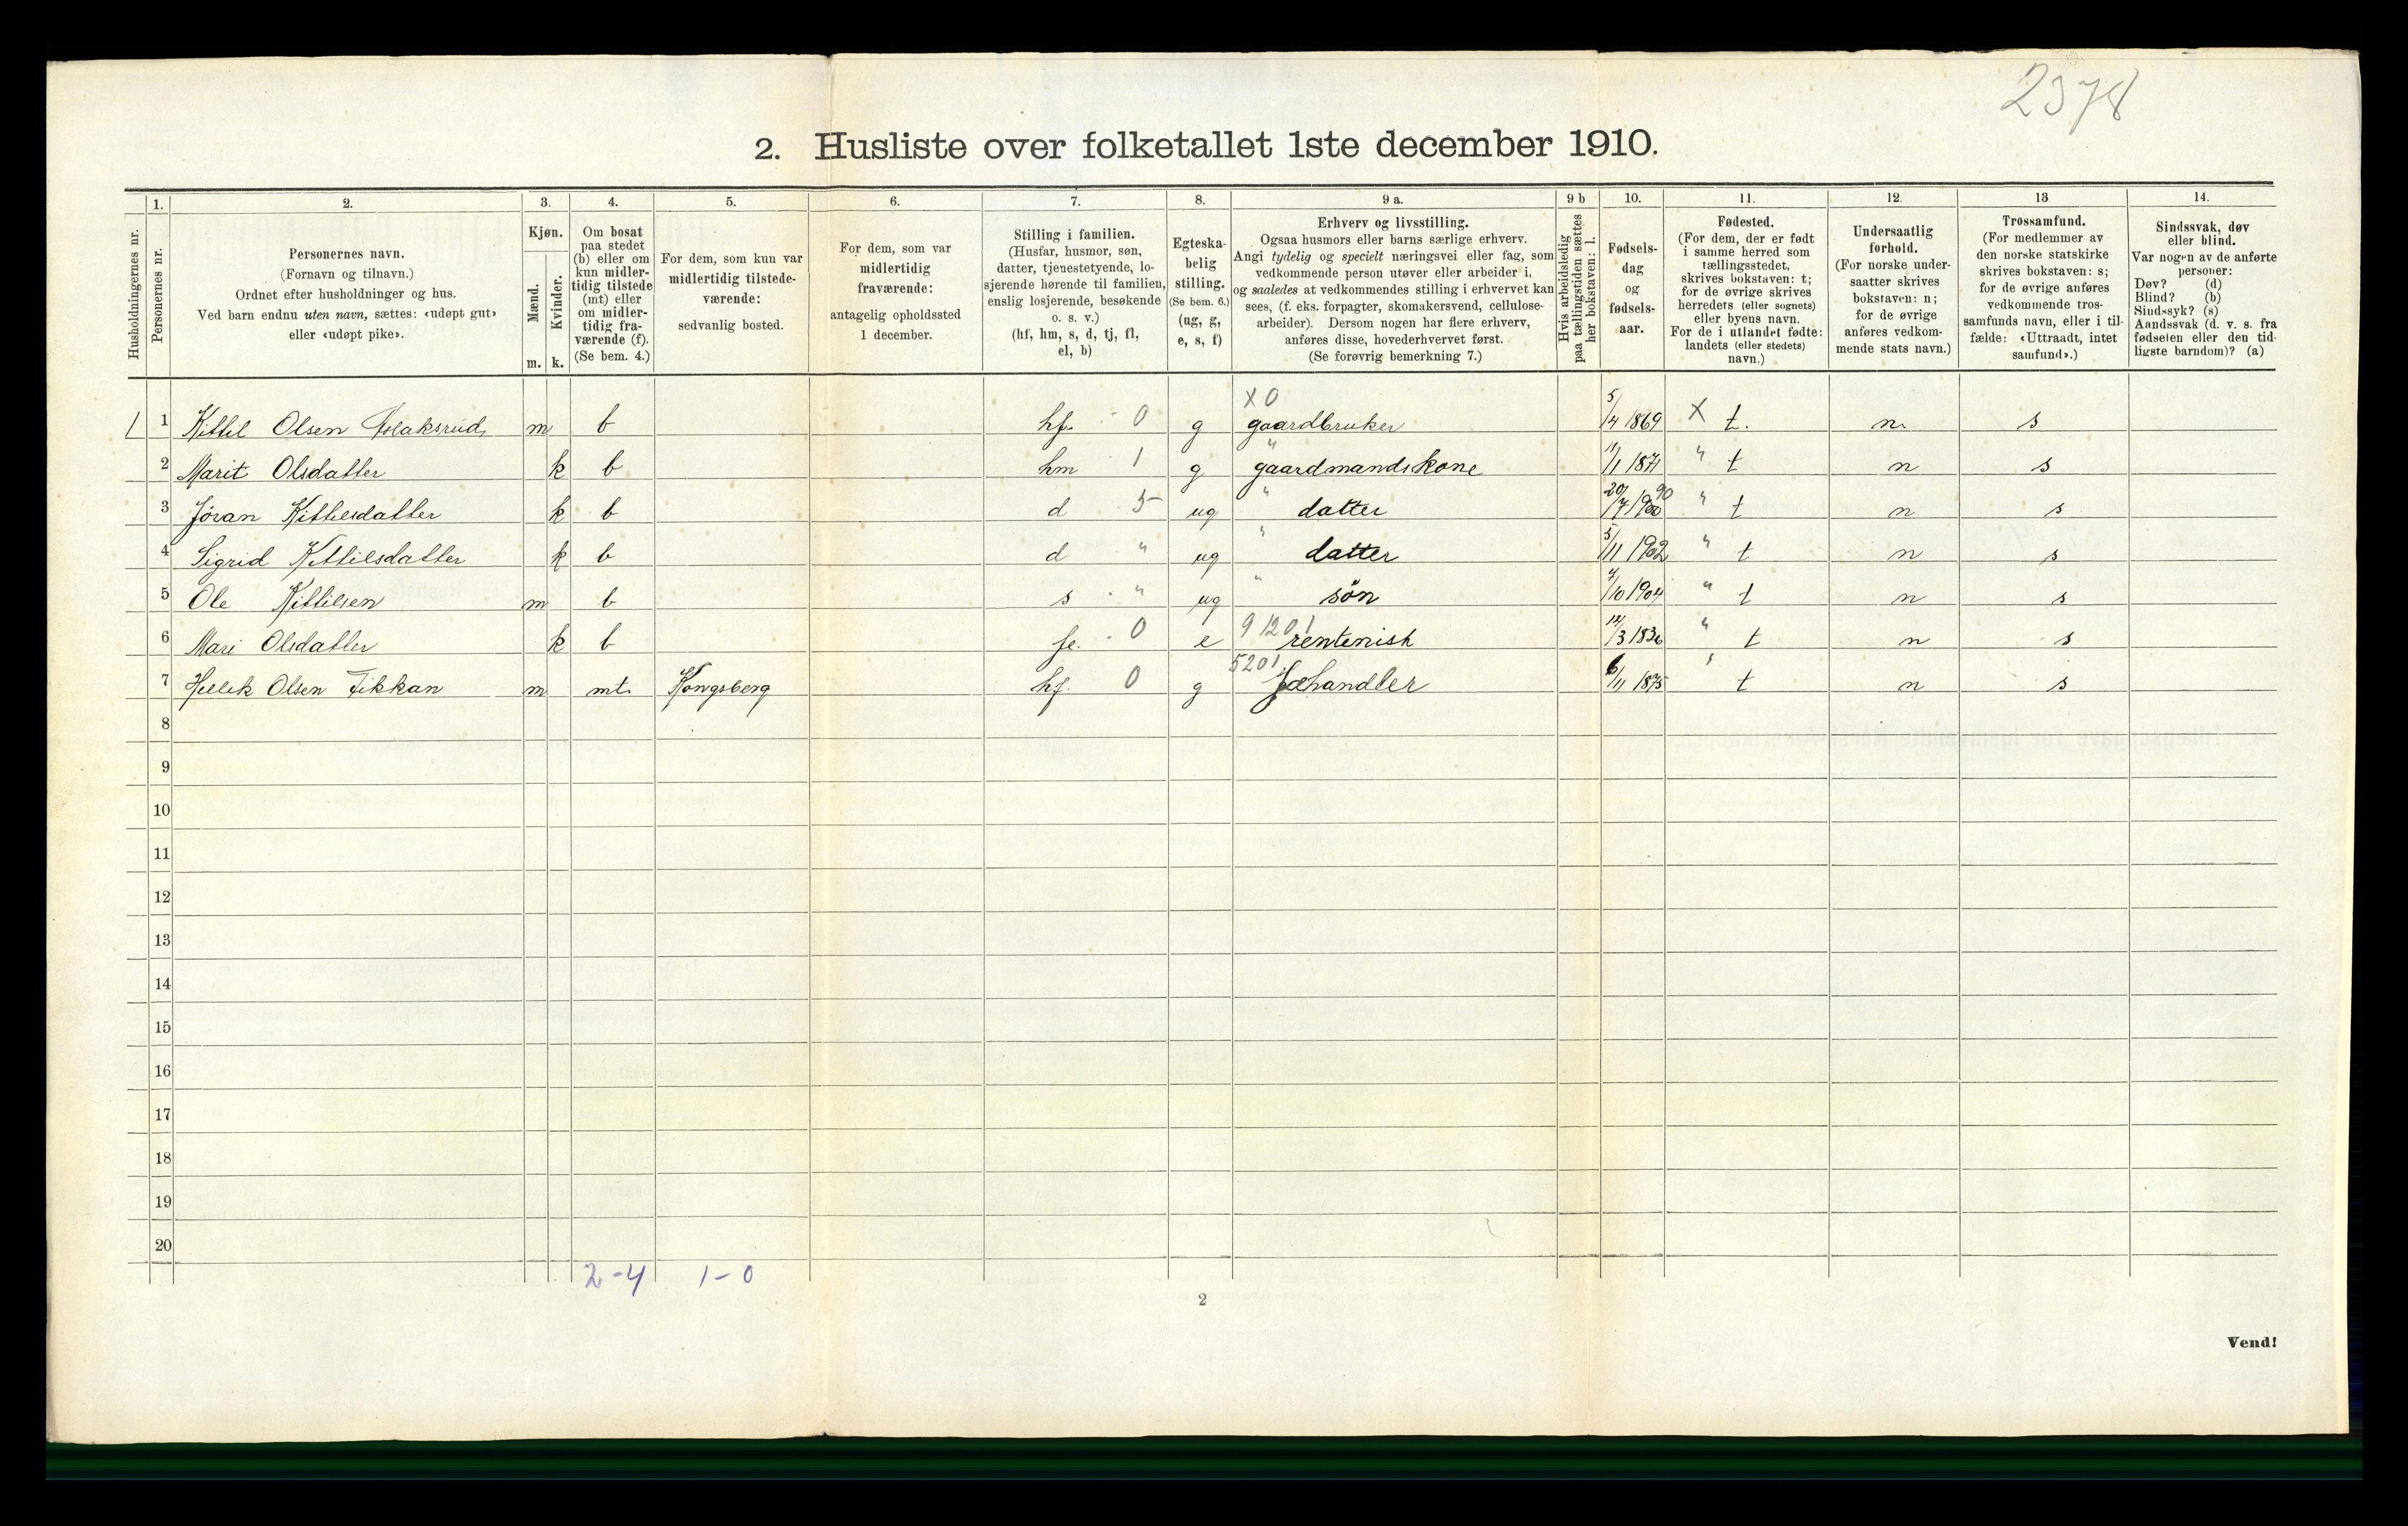 2378
2. Husliste over folketallet 1ste december 1910.
Husholdningernes nr.
1.
Personernes nr.
2.
Personernes navn.
(Fornavn og tilnavn.)
Ordnet efter husholdninger og hus.
Ved barn endnu uten navn, sættes: «udøpt gut»
eller «udøpt pike».
3.
Kjøn.
Mænd.
Kvinder.
m. k.
4.
Om bosat
paa stedet
(b) eller om
kun midler-
tidig tilstede
(mt) eller
om midler-
tidig fra-
værende (f).
(Se bem. 4.)
5.
For dem, som kun var
midlertidig tilstede-
værende:
sedvanlig bosted.
6.
For dem, som var
midlertidig
fraværende:
antagelig opholdssted
1 december.
7.
Stilling i familien.
(Husfar, husmor, søn,
datter, tjenestetyende, lo-
sjerende hørende til familien,
enslig losjerende, besøkende
o. s. v.)
(hf, hm, s, d, tj, fl,
el, b)
8.
Egteska-
belig
stilling.
(Se bem. 6.)
(ug, g,
e, s, f)
9 a.
Erhverv og livsstilling.
Ogsaa husmors eller barns særlige erhverv.
Angi tydelig og specielt næringsvei eller fag, som
vedkommende person utøver eller arbeider i,
og saaledes at vedkommendes stilling i erhvervet kan
sees, (f. eks. forpagter, skomakersvend, cellulose-
arbeider). Dersom nogen har flere erhverv,
anføres disse, hovederhvervet først.
(Se forøvrig bemerkning 7.)
9 b
Hvis arbeidsledig
paa tællingstiden sættes
her bokstaven: l.
10.
Fødsels-
dag
og
fødsels-
aar.
11.
Fødested.
(For dem, der er født
i samme herred som
tællingsstedet,
skrives bokstaven: t;
for de øvrige skrives
herredets (eller sognets)
eller byens navn.
For de i utlandet fødte:
landets (eller stedets)
navn.)
12.
Undersaatlig
forhold.
(For norske under-
saatter skrives
bokstaven: n;
for de øvrige
anføres vedkom-
mende stats navn.)
13
Trossamfund.
(For medlemmer av
den norske statskirke
skrives bokstaven: s;
for de øvrige anføres
vedkommende tros-
samfunds navn, eller i til-
fælde: «Uttraadt, intet
samfund».)
14.
Sindssvak, døv
eller blind.
Var nogen av de anførte
personer:
Døv? (d)
Blind? (b)
Sindssyk? (s)
Aandssvak (d. v. s. fra
fødselen eller den tid-
ligste barndom)? (a)
X 0
1 1 Kittil Olsen Aslaksrud m b hf. 0 g gaardbruker 5/4 1869 X t. n. s
2 Marit Olsdatter k b hm 1 g " gaardmandskone 11/1 1871 " t n s
3 Jöran Kittilsdatter k b d 5 ug " datter 20/7 1900 90 " t n s
4 Sigrid Kittilsdatter k b d " ug " datter 5/11 1902 " t n s
5 Ole Kittilsen m b s " ug " sön 7/10 1904 " t n s
6 Mari Olsdatter k b fe. 0 e 91201 rentenist 14/3 1836 " t n s
7 Hellek Olsen Fikkan m mt. Kongsberg hf. 0 g 5201 Fæhandler 6/11 1875 " t n s
8
9
10
11
12
13
14
15
16
17
18
19
20
2-4 1-0
2
Vend!